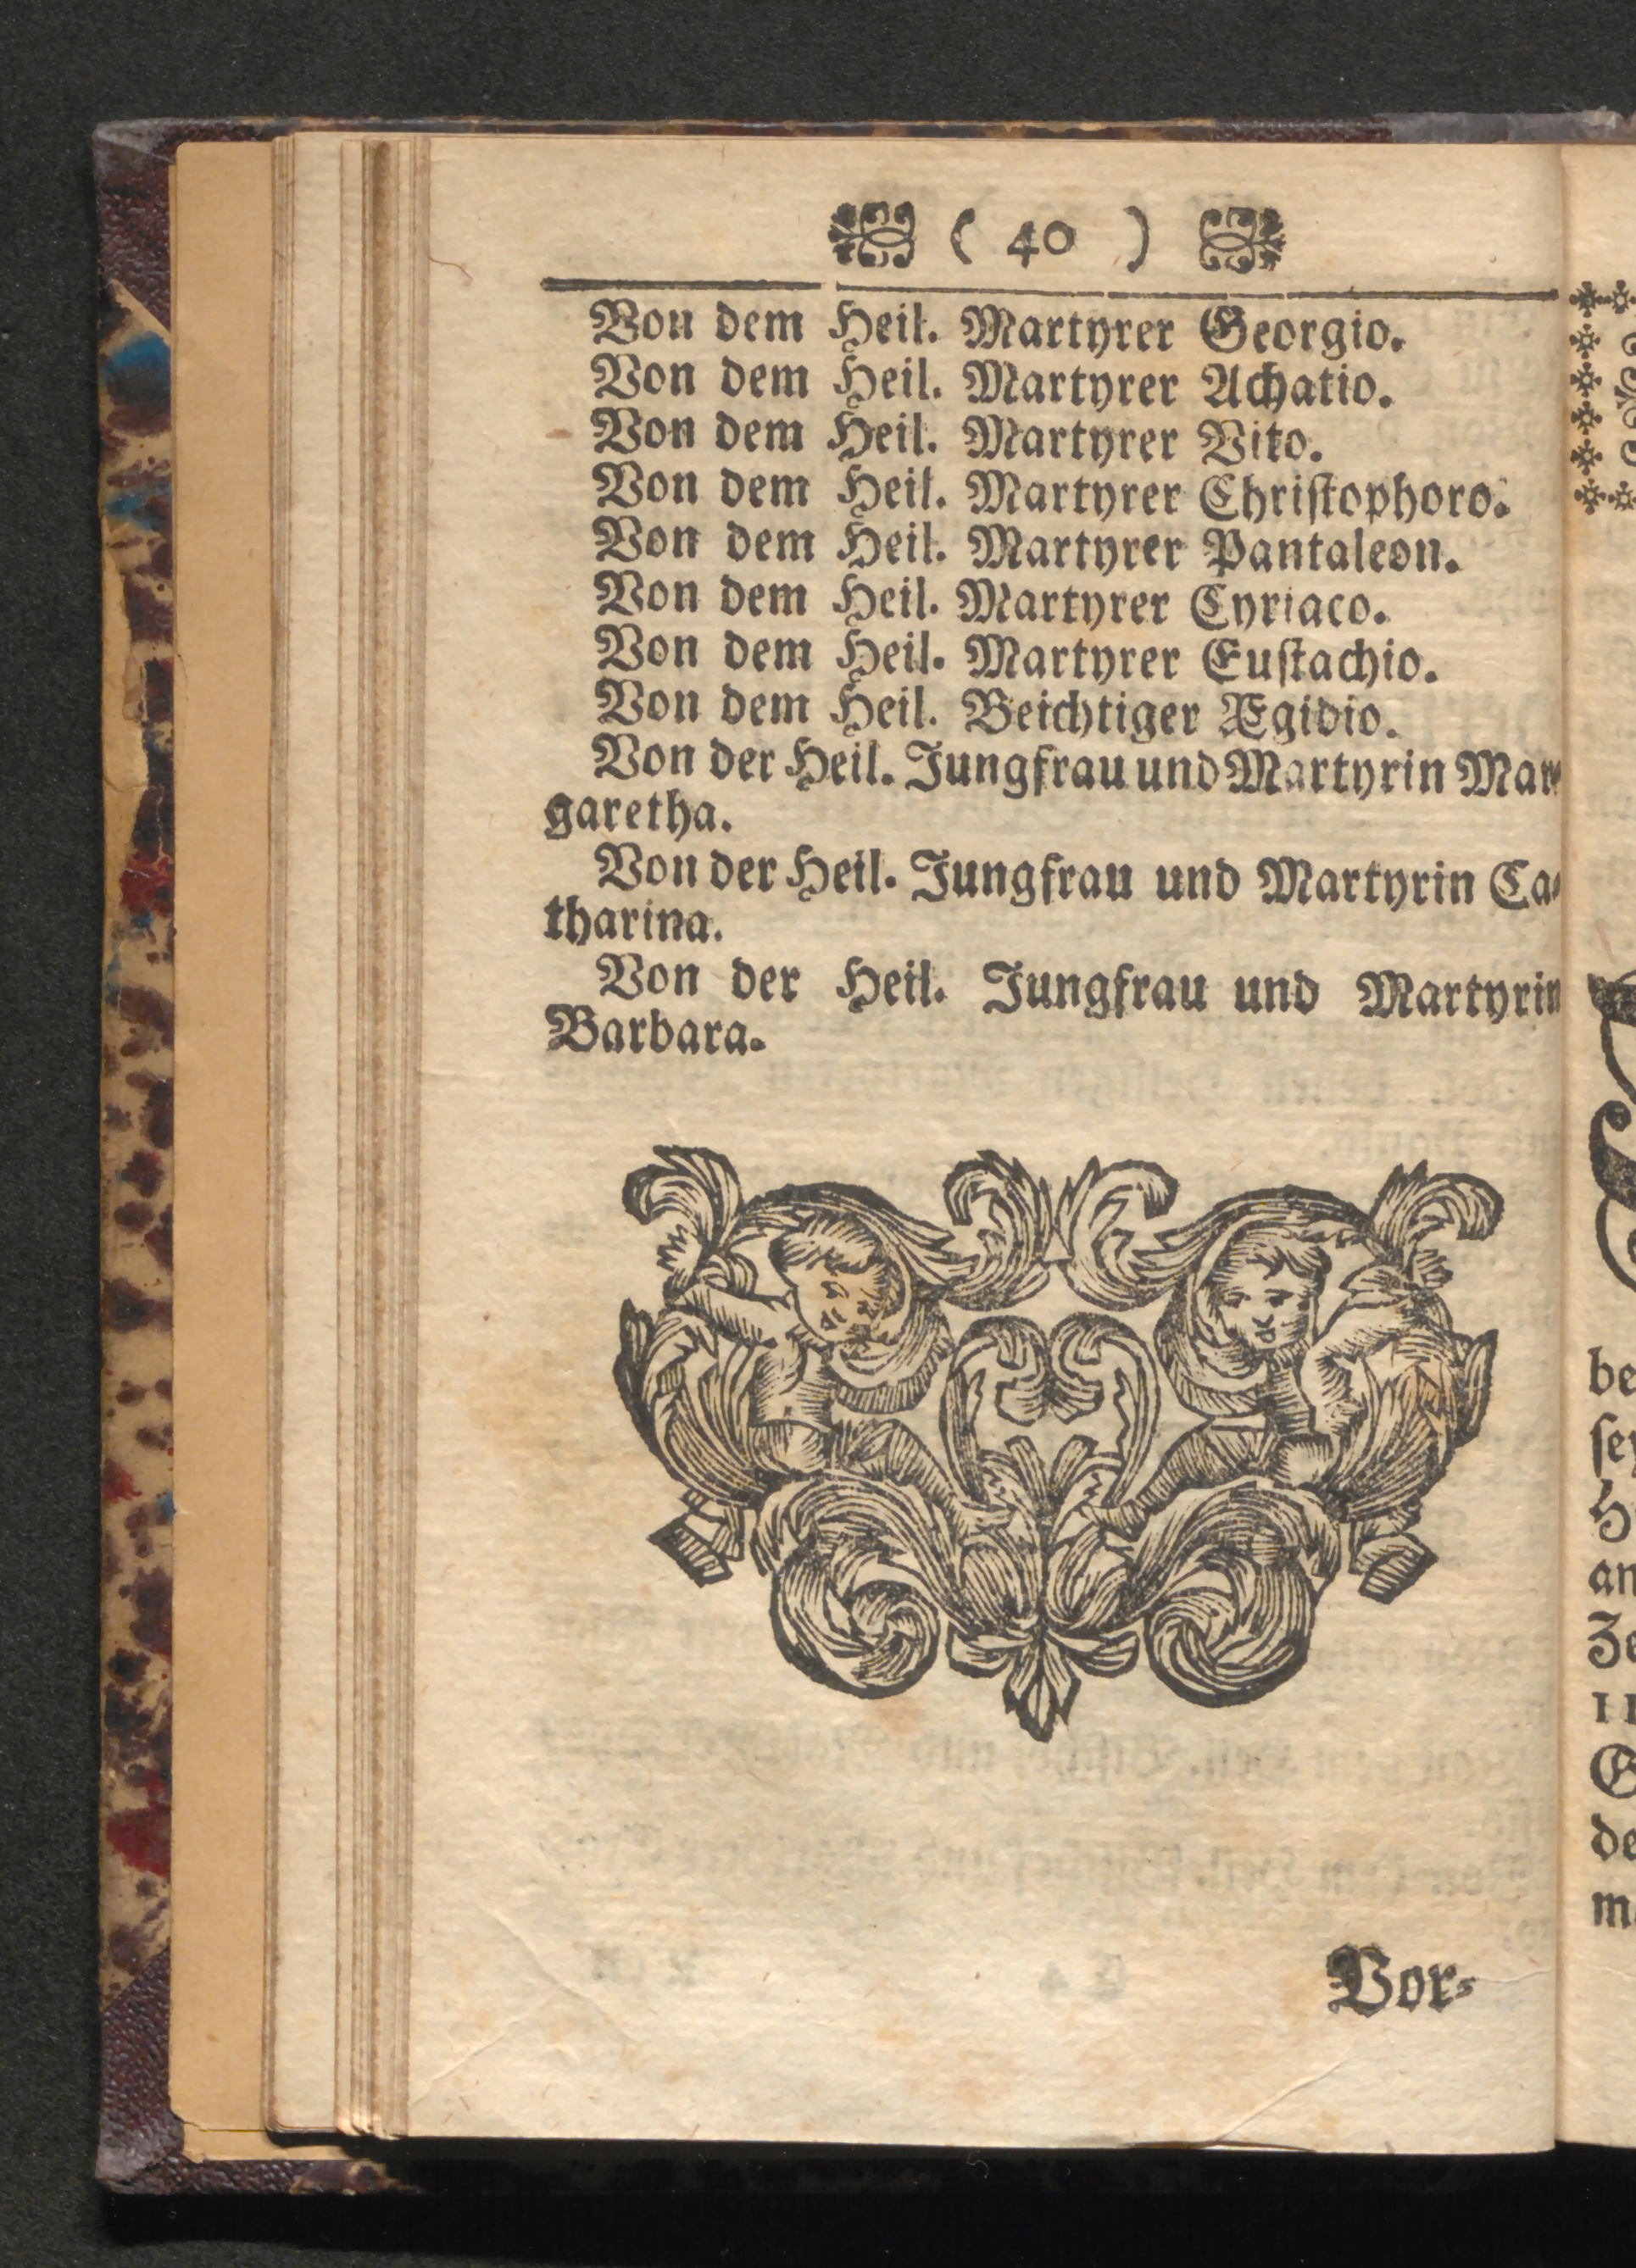 ( 40 )
Von dem Heil. Martyrer Georgio.
Von dem Heil. Martyrer Achatio.
Von dem Heil. Martyrer Vito.
Von dem Heil. Martyrer Chriſtophoro.
Von dem Heil. Martyrer Pantaleon.
Von dem Heil. Martyrer Cyriaco.
Von dem Heil. Martyrer Euſtachio.
Von dem Heil. Beichtiger Ægidio.
Von der Heil. Jungfrau und Martyrin Mar⸗
garetha.
Von der Heil. Jungfrau und Martyrin Ca⸗
tharina.
Von der Heil. Jungfrau und Martyrin
Barbara.
Vor⸗